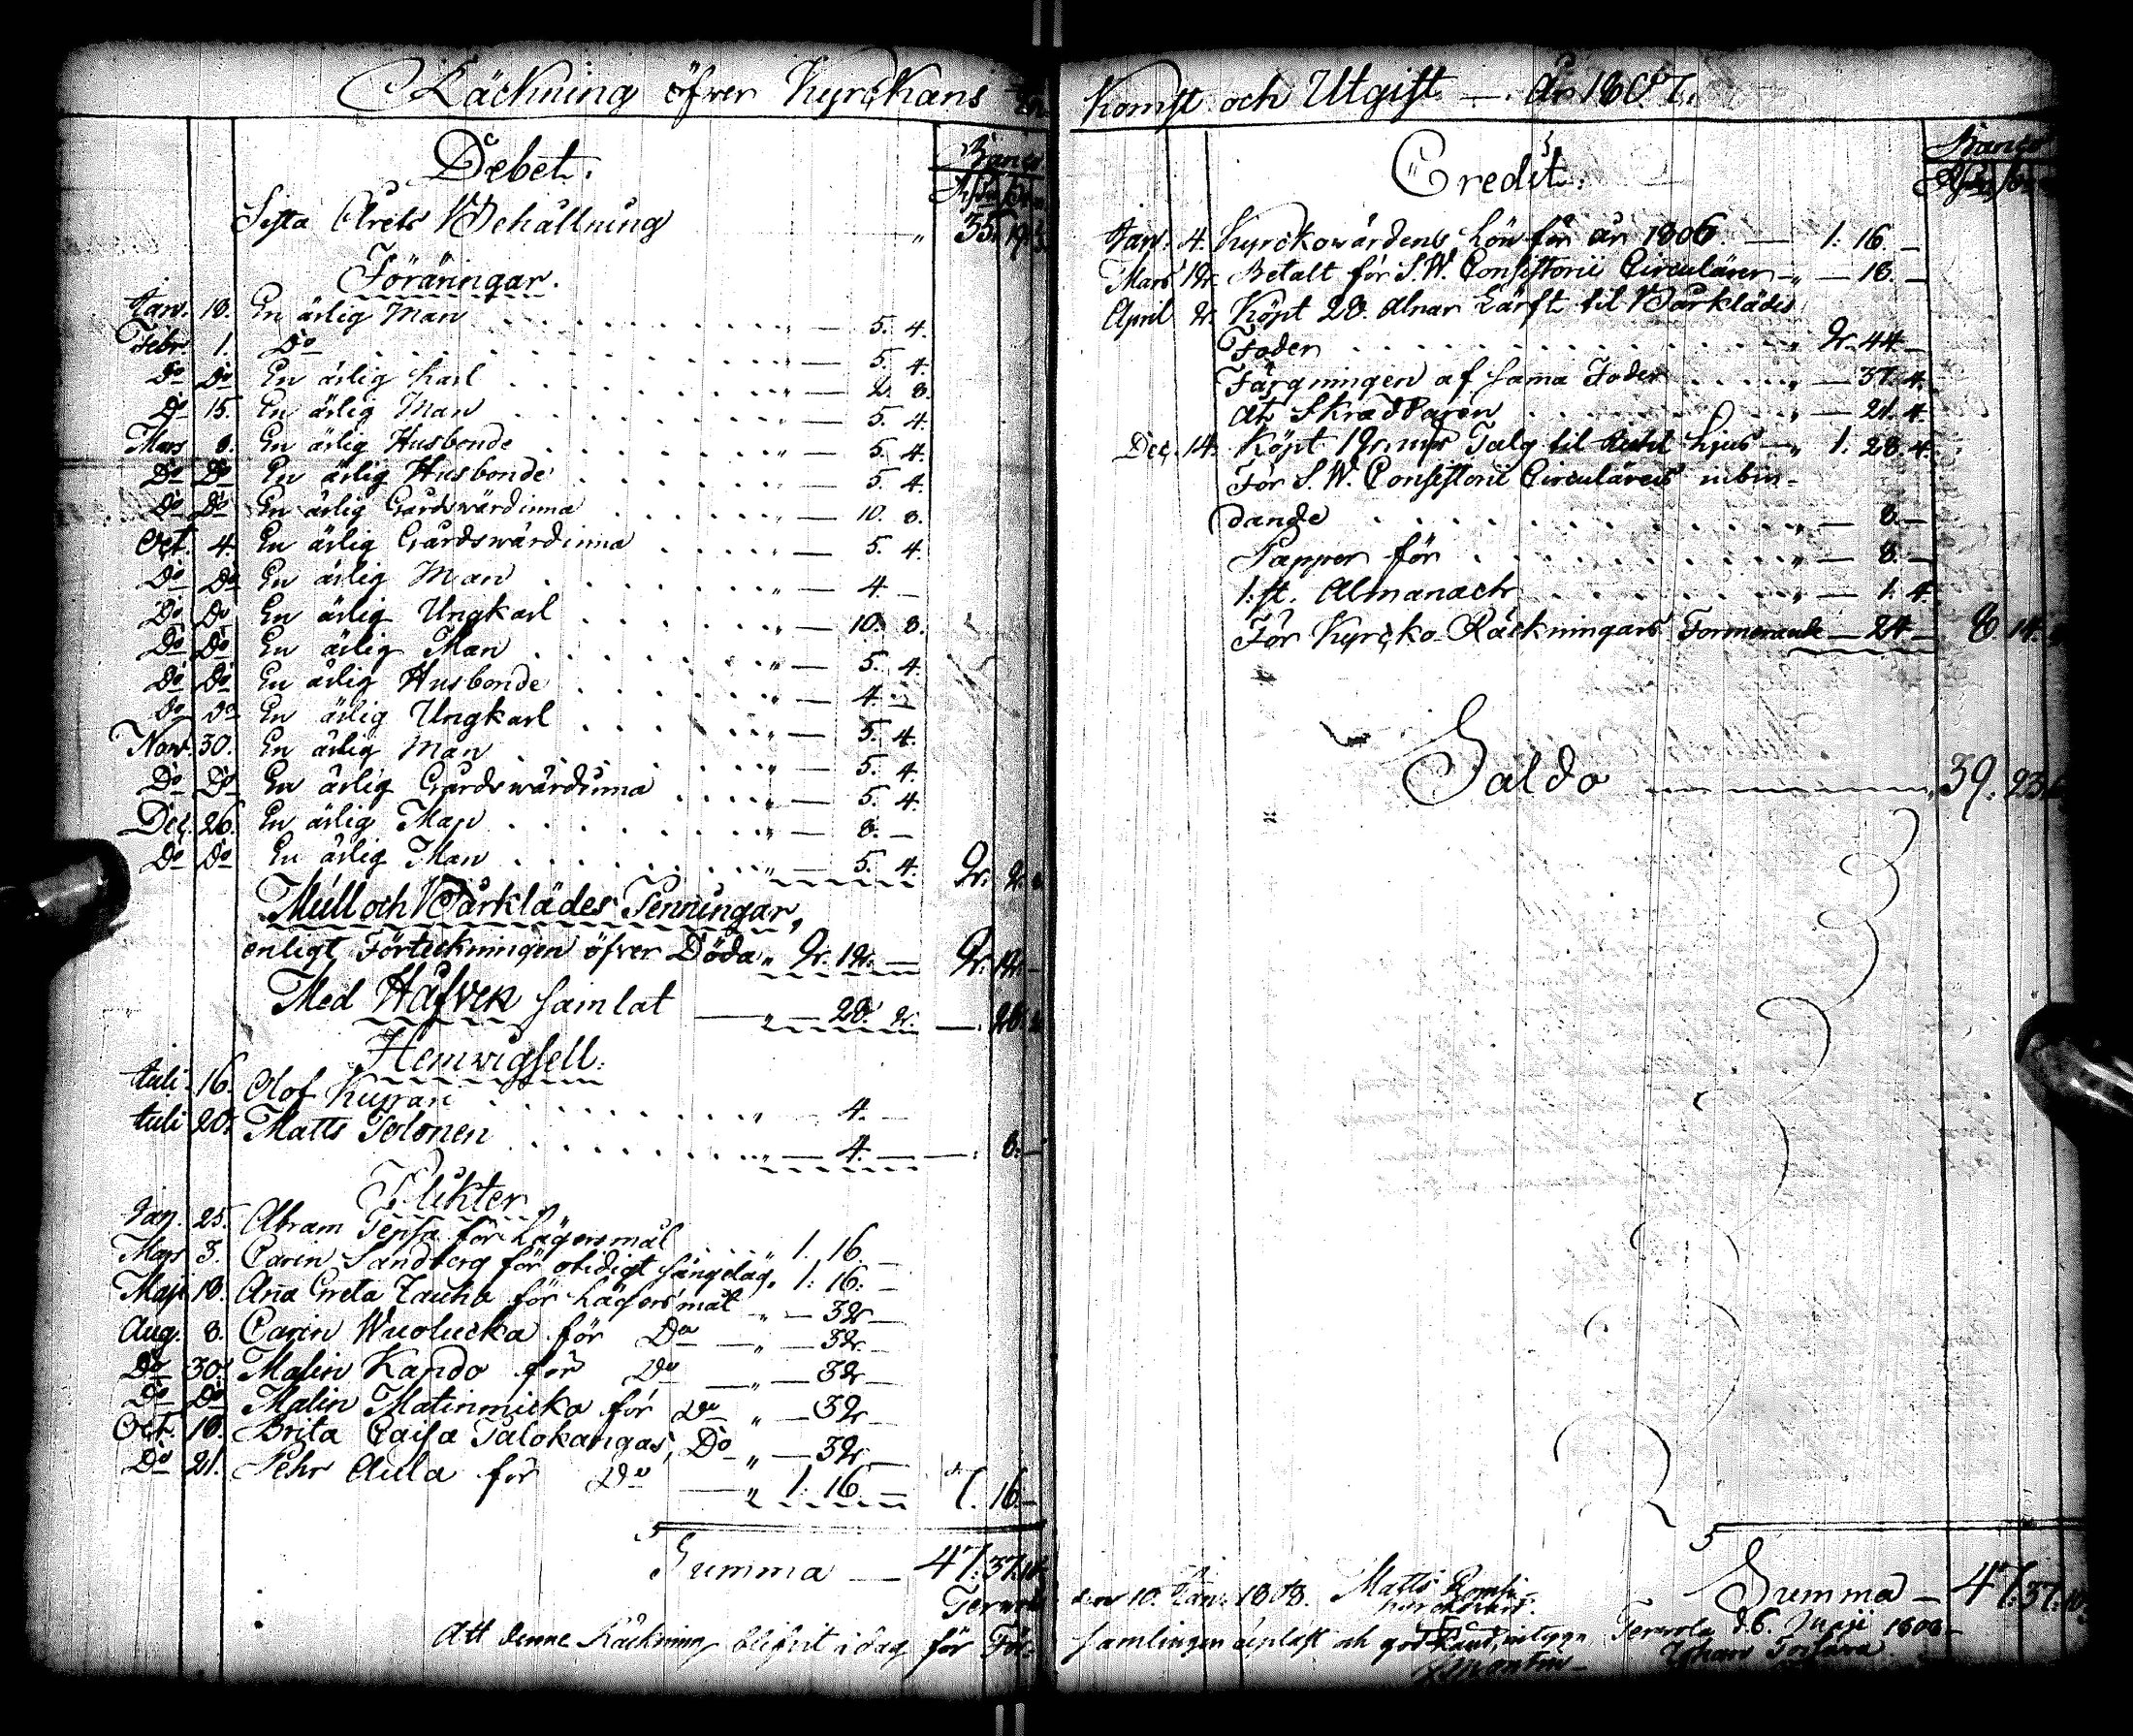 Räckning öfver Kyrckans In-
Debet.
Banco
Sista Årets Behållning " 35. 19.
Föräringar.
Janv. 18. En ärlig Man " — 5. 4.
Febr. 1. Do " — 5. 4.
Do Do En ärlig Karl " — 2. 8.
Do 15. En ärlig Man " — 5. 4.
Mars 8. En ärlig Husbonde " — 5. 4.
Do Do En ärlig Husbonde " — 5. 4.
Do Do En ärlig Gårdswärdinna " — 10. 8.
Oct. 4. En ärlig Gårdswärdinna " — 5. 4.
Do Do En ärlig Man " — 4. —
Do Do En ärlig Ungkarl " — 10. 8.
Do Do En ärlig Man " — 5. 4.
Do Do En ärlig Husbonde " — 4. —
Do Do En ärlig Ungkarl " — 5. 4.
Nov. 30. En ärlig Man " — 5. 4.
Do Do En ärlig Gårdswärdinna " — 5. 4.
Dec. 26. En ärlig Man " — 8. —
Do Do En ärlig Man " — 5. 4. 2. 2.
Mull och Bårklädes Penningar,
enligt Förteckningen öfver Döda " 2. 12. — 2. 12. —
Med Håfven samlat — " — 28. 2. — 28.
Hemvigsell.
Juli 16. Olof " — 4. —
Juli 20. Matts Polonen " — 4. — — 8. —
Plikter
Jan. 25. Abram Tepsa för Lägersmål " 1. 16. —
Mars 3. Carin Sandberg för otidigt sängelag " 1: 16: —
Maji 18. Aña Greta Zauha för Lägersmål " — 32 —
Aug. 8. Carin Wuolucka för Do — " — 32. —
Do 30. Malin Kando för Do — " — 32 —
Do Do Malin Matinmicka för Do " — 32 —
Oct. 18. Brita Caisa Palokangas, Do " — 32 —
Do 21. Pehr Aula för Do — " 1. 16. — 7. 16. —
Summa — 47. 37. 10.
Terwola
Att denne Räckning blifvit i dag för För-
Komst och Utgift — År 1807.
Credit.
Banco
Janv. 4. Kyrckowärdens Lön för år 1806 — 1. 16. —
Mars 12. Betalt för S. W. Consistorii Circulärer — " — 18. —
April 2. Köpt 28. Alnar Lärft til Bårklädes
Foder " 2. 44. —
Färgningen af sama Foder " — 37. 4.
At Skräddaren " — 21. 4.
Dec. 14. Köpt 12. Talg til Ljus — " 1. 28. 4.
För S. W. Consistorii Circulärers inbin-
dande " — 8. —
Papper för " — 8. —
1. st. Almanach " — 1. 4.
För Kyrcko-Räckningars Formerande — 24 — 8 14.
Saldo " 39. 23.
Summa — 47. 37. 10.
den 10. Jan. 1808. Matts
samlingen upläst och godkänd, intyga Terwola d. 6. Maji 1808 —
Johan